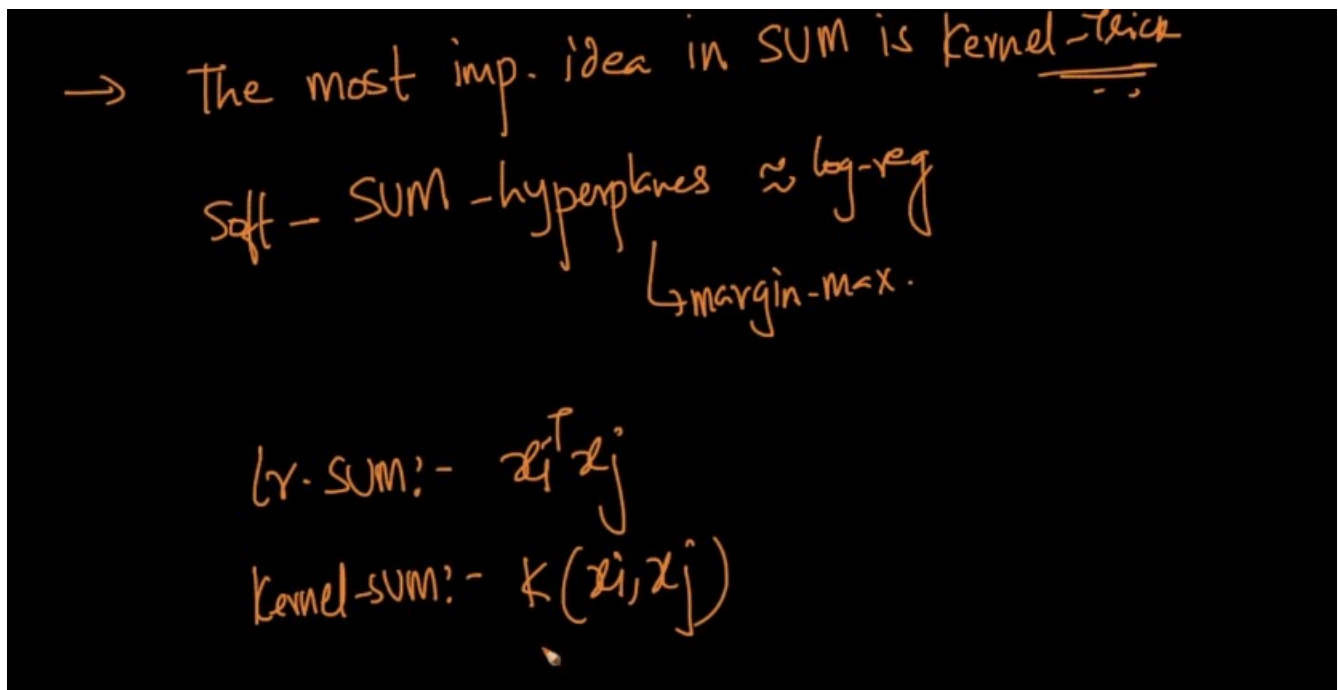 → The most imp. idea in SVM is Kernel-Trick
Soft - SVM - hyperplanes ≈ log-reg
↳ margin-max.
lr. SVM:- xᵢᵀxⱼ
Kernel-SVM:- K(xᵢ, xⱼ)